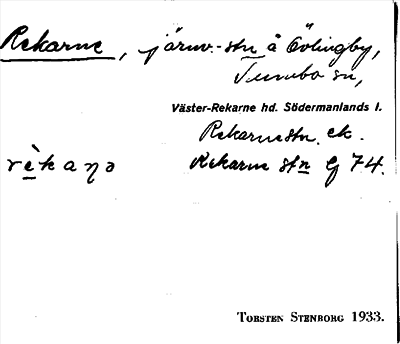 Rekarne, järnv.-stn å Övlingby,
Tumbo sn,
Väster-Rekarne hd. Södermanlands l.
Rekarne stn. ek.
rèkaŋə Rekarne stn G 74.
TORSTEN STENBORG 1933.